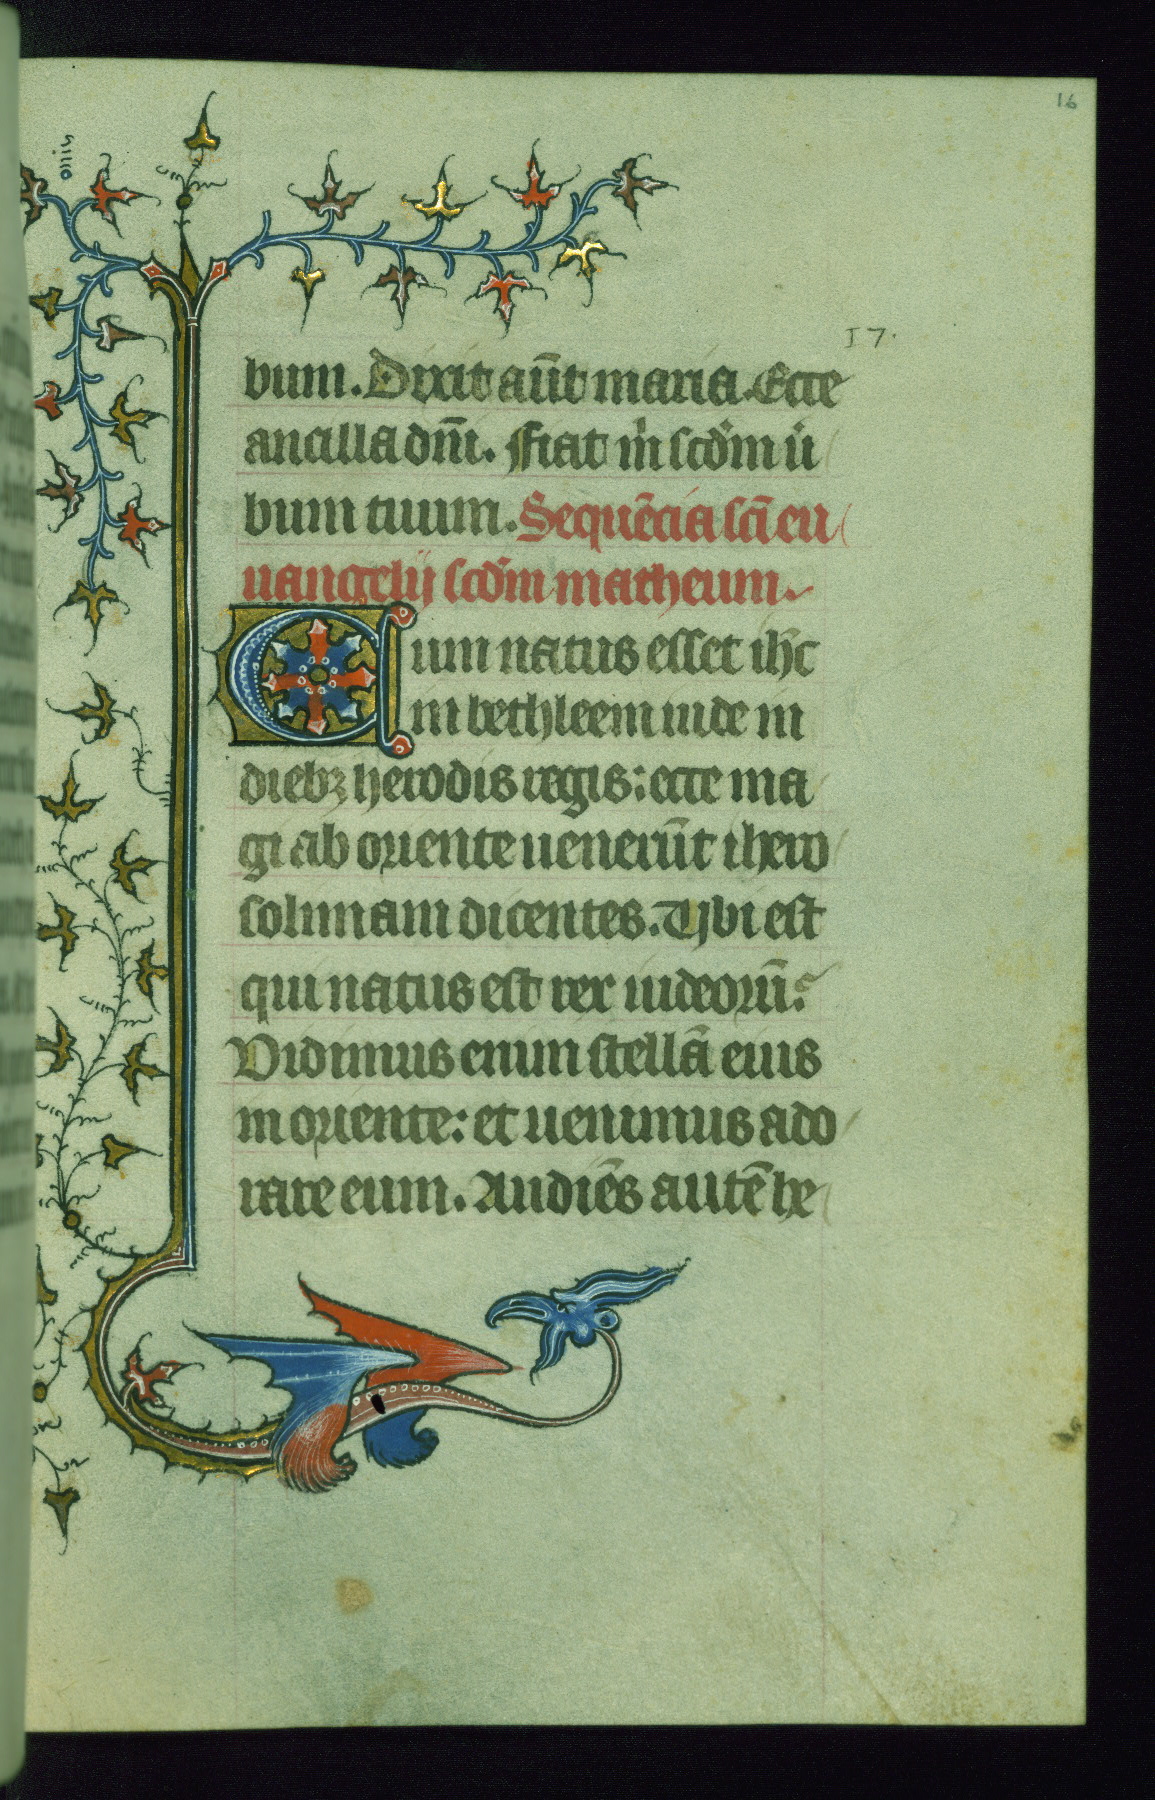 16
17.
bum. Dixit aūt maria. Ecce
ancilla dn̄i. Fiat m̍ scdm̄ u̍
bum tuum. Sequēcia scī eu
uangelij scdm̄ matheum.
Cum natus esset ihc̄
in bethleem iude in
dieb₃ herodis regis: ecce ma
gi ab oriente uenerūt ihero
solimam dicentes. Vbi est
qui natus est rex iudeorū.
Vidimus enim stellā eius
in oriente: et uenimus ado
rare eum. Audiēs autē he